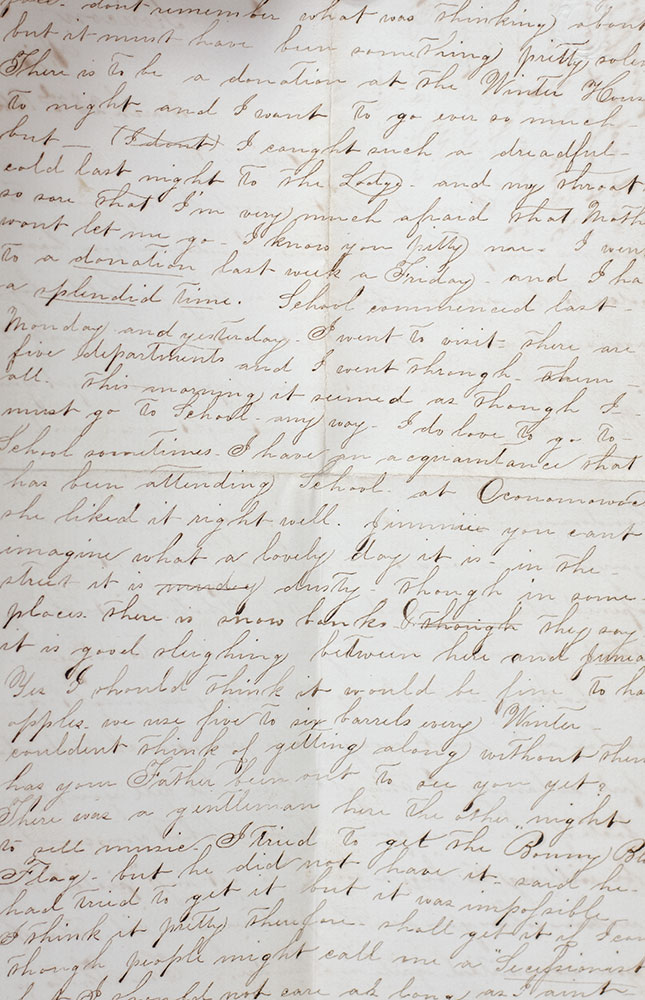 face. dont remember what was thinking about
but it must have been something pretty solem
There is to be a donation at the Winter House
to night- and I want to go ever so much-
but- (I dont) I caught such a dreadful-
cold last night to the Lodge- and my throat
so sore that I'm very much afraid that Moth
wont let me go- I know you pitty me- I went
to a donation last week a Friday- and I ha
a splendid time. School commenced last-
Monday and yesterday- I went to visit- there are
five departments and I went through- them-
all. this morning it seemed as though I-
must go to School- any way- I do love to go to
School sometimes- I have an acquaintance that
has been attending School- at Oconomowoc
she liked it right well. Jimmie you cant
imagine what a lovely day it is- in the-
street it is windy dusty- though in some-
places there is snow banks- though they say
it is good sleighing between here and Junea
Yes I should think it would be fine to ha
apples- we use five to six barrels every Winter-
couldent think of getting along without them
has your Father been out to see you yet?
There was a gentleman here the other night
to sell music- I tried to get the "Bonny Blu
Flag- but he did not have it- said he-
had tried to get it but it was impossible
I think it pretty therefore- shall get it if I can
though people might call me a "Secessionist
but I should not care as long as I aint